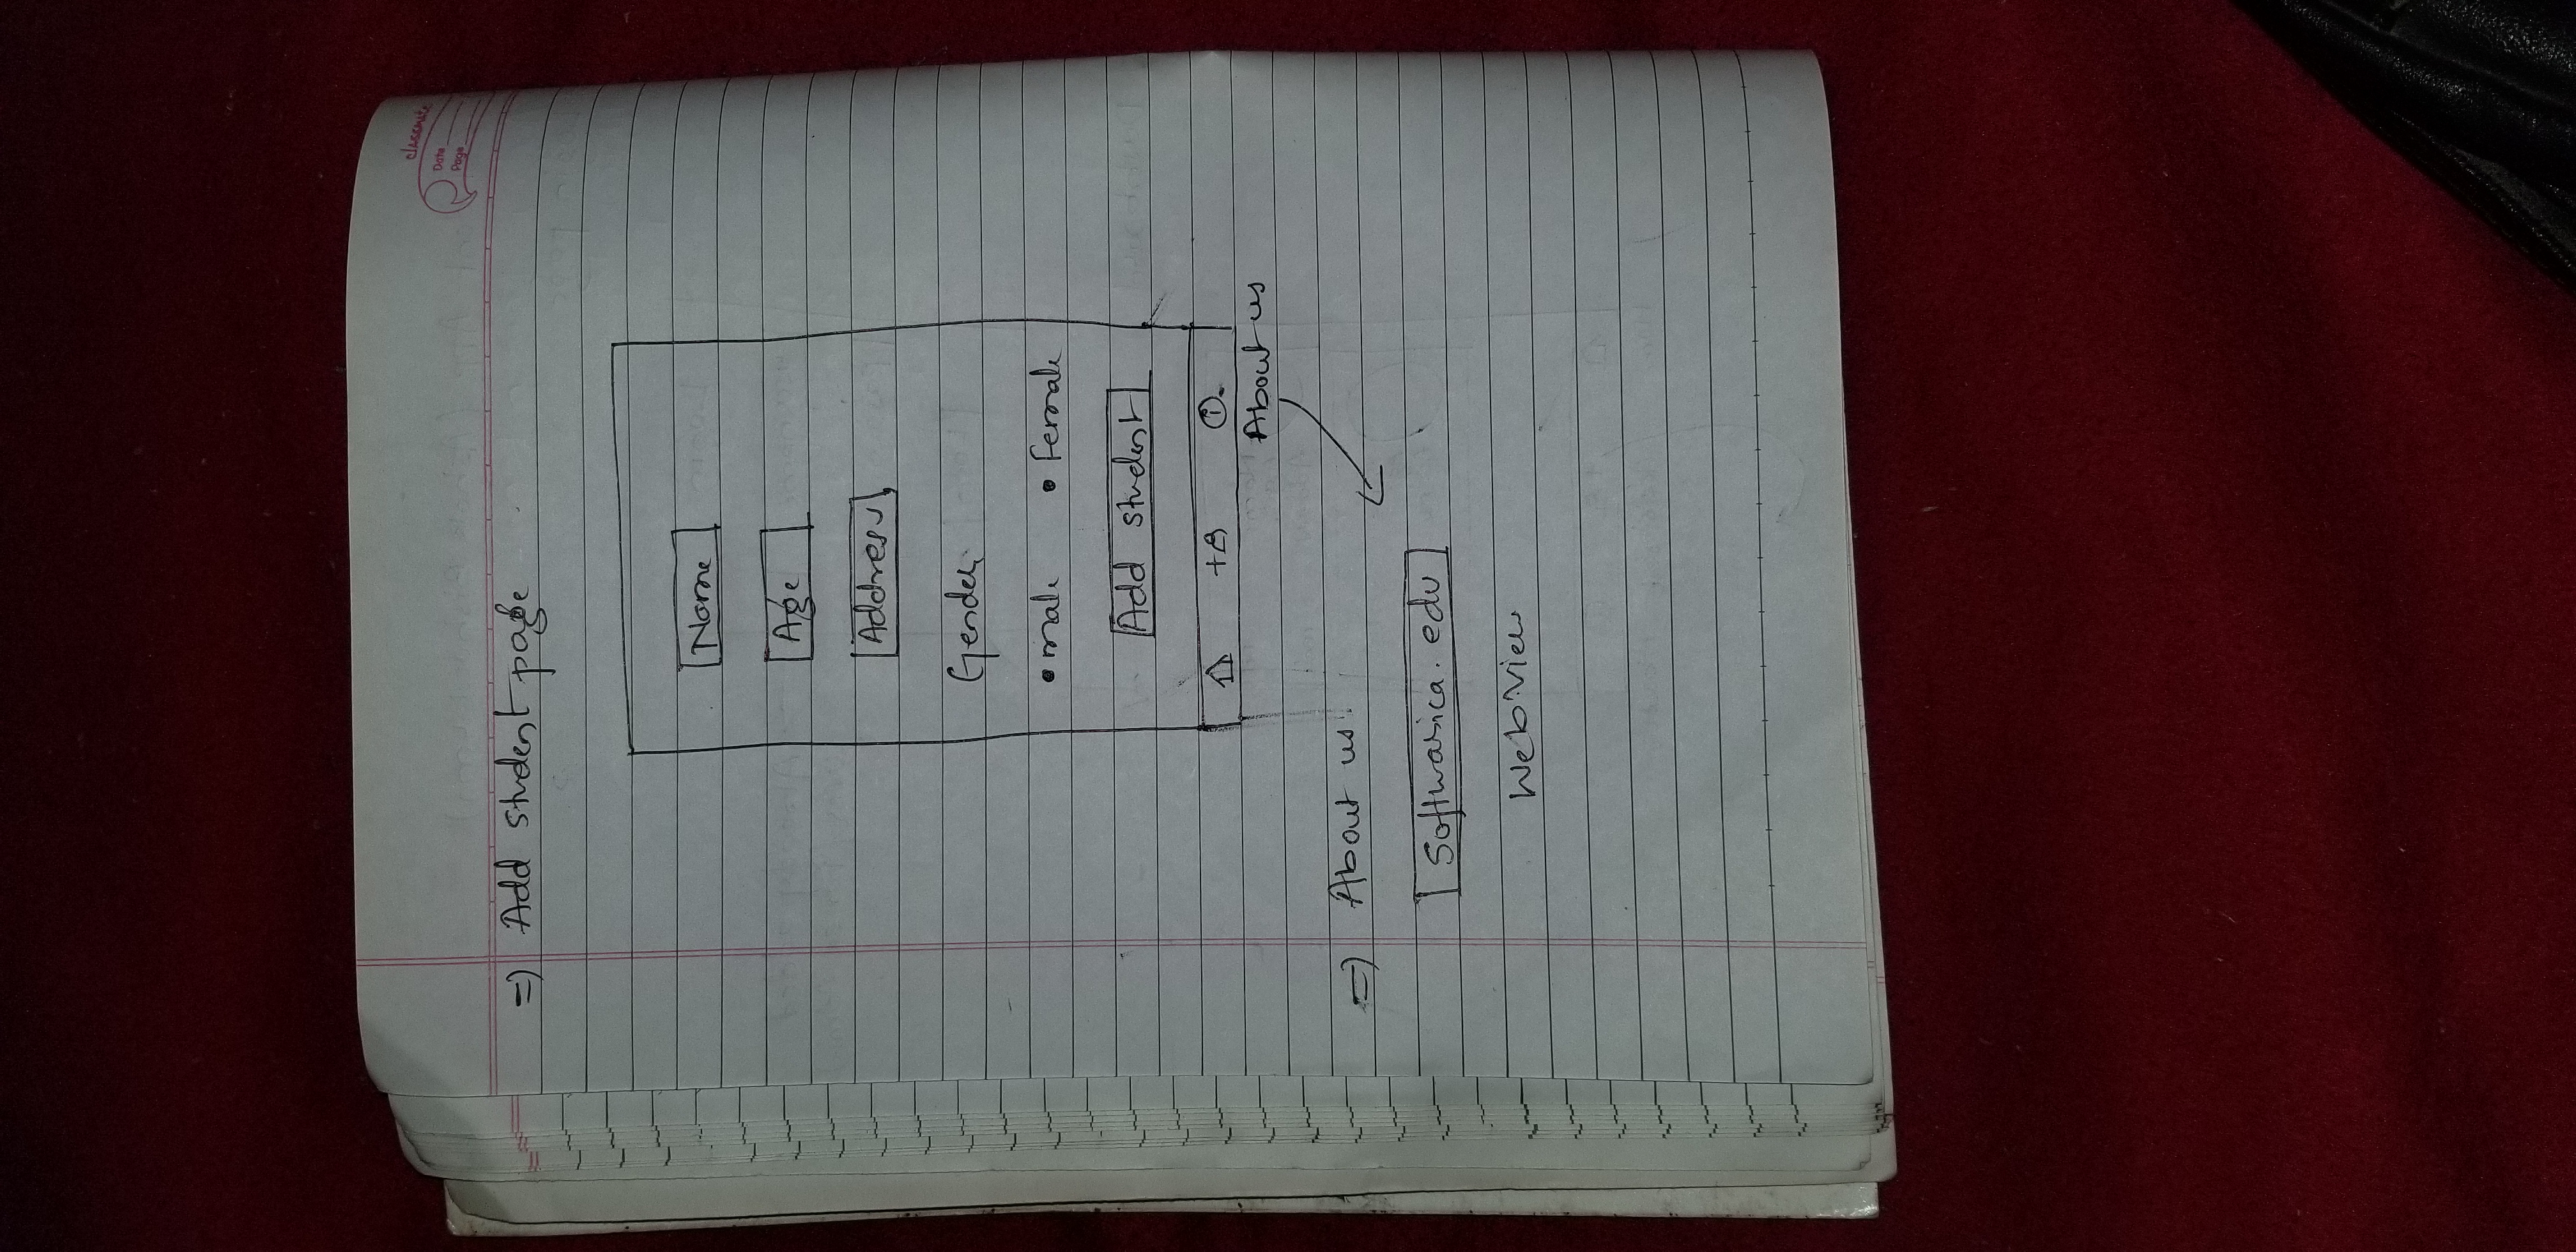 classmate
Date
Page
=) Add student page
Name
Age
Address
Gender
• male • Female
Add student
+ i
About us
=) About us
Softwarica.edu
WebView